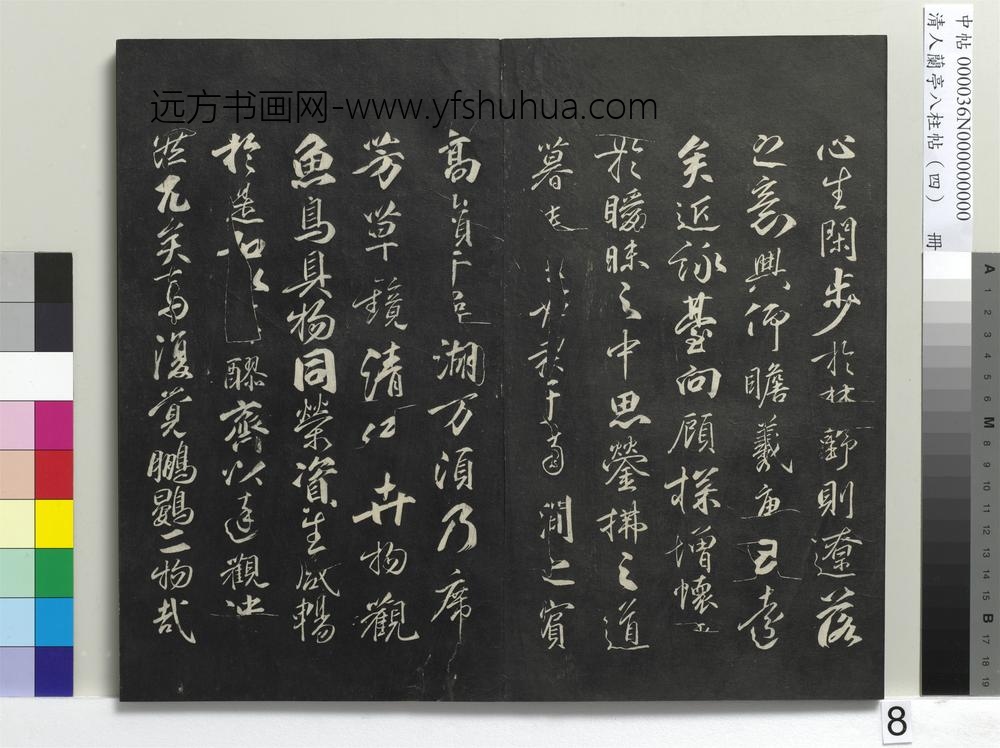 中帖 000036N000000000
清人蘭亭八柱帖（四） 冊
远方书画网-www.yfshuhua.com
心生閑步於林野則遼落
之意興仰瞻羲唐遠
矣近詠臺向顧探增懷
於曖昧之中思瑩拂之道
暮于南澗之賓
高湖万須乃席
芳草鏡清卉物觀
魚鳥具物同榮資生咸暢
於是和以醪齊以達觀泱
然兀矣焉復覺鵬鷃二物哉
8
A 1 2 3 4 5 6 M 8 9 10 11 12 13 14 15 B 17 18 19